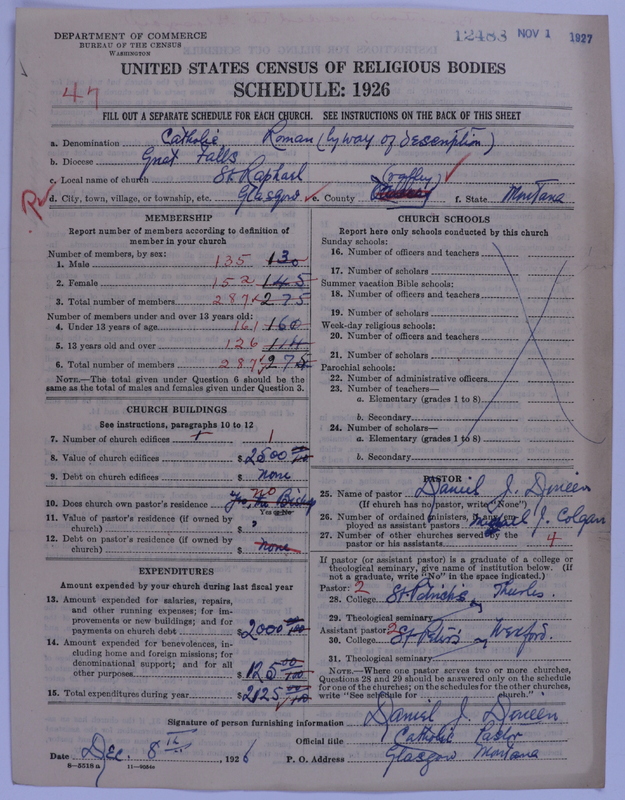 DEPARTMENT OF COMMERCE
BUREAU OF THE CENSUS
WASHINGTON
12483 NOV 1 1927
UNITED STATES CENSUS OF RELIGIOUS BODIES
SCHEDULE: 1926
47
FILL OUT A SEPARATE SCHEDULE FOR EACH CHURCH. SEE INSTRUCTIONS ON THE BACK OF THIS SHEET
a. Denomination Catholic Roman (by way of description)
b. Diocese Great Falls
c. Local name of church St. Raphael
d. City, town, village, or township, etc. Glasgow e. County (Valley) f. State Montana
MEMBERSHIP
Report number of members according to definition of member in your church
Number of members, by sex:
1. Male 135 130
2. Female 152 145
3. Total number of members 287 275
Number of members under and over 13 years old:
4. Under 13 years of age 161 160
5. 13 years old and over 126 114
6. Total number of members 287 275
NOTE.—The total given under Question 6 should be the same as the total of males and females given under Question 3.
CHURCH BUILDINGS
See instructions, paragraphs 10 to 12
7. Number of church edifices 1 1
8. Value of church edifices $ 2500 00/100
9. Debt on church edifices $ none
10. Does church own pastor's residence no Yes, the Bishop
Yes or No
11. Value of pastor's residence (if owned by church) $
12. Debt on pastor's residence (if owned by church) $ none
EXPENDITURES
Amount expended by your church during last fiscal year
13. Amount expended for salaries, repairs, and other running expenses; for improvements or new buildings; and for payments on church debt $ 2000 00/100
14. Amount expended for benevolences, including home and foreign missions; for denominational support; and for all other purposes $ 125 00/100
15. Total expenditures during year $ 2125 00/100
CHURCH SCHOOLS
Report here only schools conducted by this church
Sunday schools:
16. Number of officers and teachers
17. Number of scholars
Summer vacation Bible schools:
18. Number of officers and teachers
19. Number of scholars
Week-day religious schools:
20. Number of officers and teachers
21. Number of scholars
Parochial schools:
22. Number of administrative officers
23. Number of teachers—
a. Elementary (grades 1 to 8)
b. Secondary
24. Number of scholars—
a. Elementary (grades 1 to 8)
b. Secondary
PASTOR
25. Name of pastor Daniel J. Doneen
(If church has no pastor, write "None")
26. Number of ordained ministers, if any, employed as assistant pastors Michael J. Colgan
27. Number of other churches served by the pastor or his assistants 4
If pastor (or assistant pastor) is a graduate of a college or theological seminary, give name of institution below. (If not a graduate, write "No" in the space indicated.)
Pastor: 2
28. College St. Patrick's Thurles.
29. Theological seminary
Assistant pastor: 2
30. College St. Peter's Wexford.
31. Theological seminary
NOTE.—Where one pastor serves two or more churches, Questions 28 and 29 should be answered only on the schedule for one of the churches; on the schedules for the other churches, write "See schedule for church."
Signature of person furnishing information Daniel J. Doneen
Official title Catholic Pastor
Date Dec. 8th, 1926 P. O. Address Glasgow Montana
8—5518 a